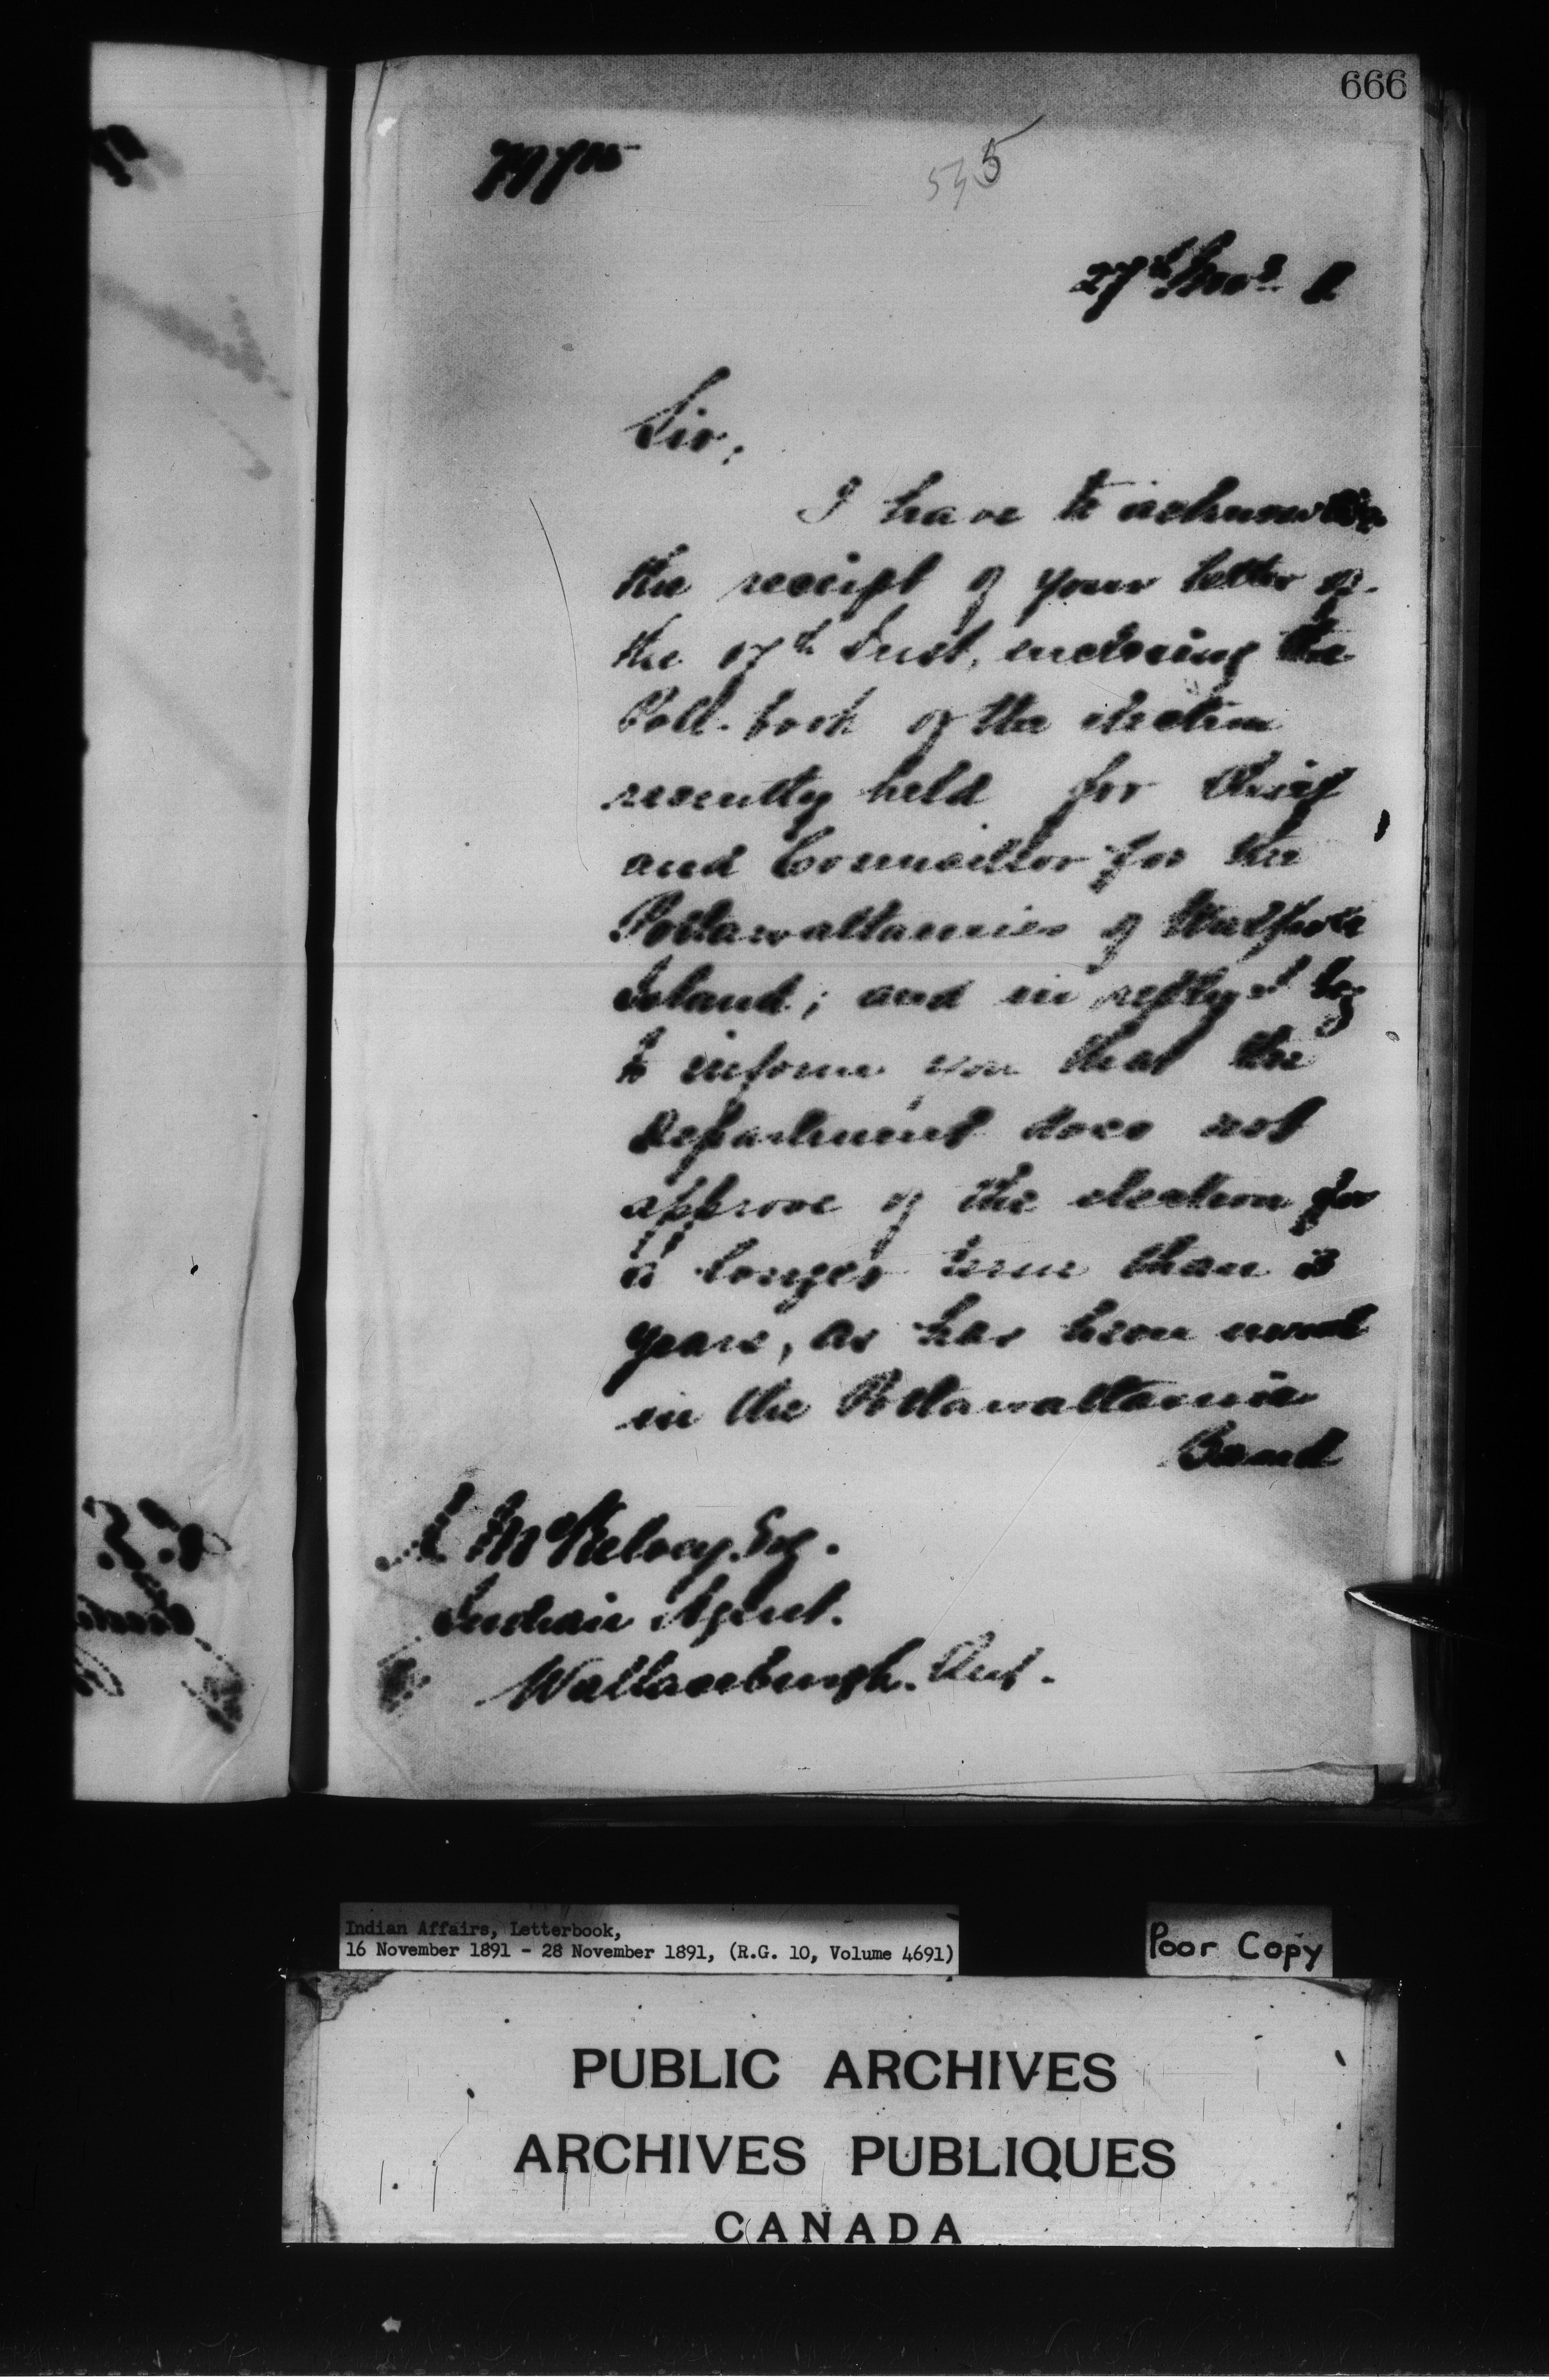 666
535
27th Nov. 1
Sir,
I have to acknowledge
the receipt of your letter of
the 17th Inst, enclosing the
Poll-book of the election
recently held for Chief
and Councillor for the
Pottawattamies of Walpole
Island; and in reply I beg
to inform you that the
Department does not
approve of the election for
a longer term than 3
years, as has been usual
in the Pottawattamie
Band
A McKelvey, Esq.
Indian Agent.
Wallaceburgh. Ont.
Indian Affairs, Letterbook,
16 November 1891 - 28 November 1891, (R.G. 10, Volume 4691)
Poor Copy
PUBLIC ARCHIVES
ARCHIVES PUBLIQUES
CANADA